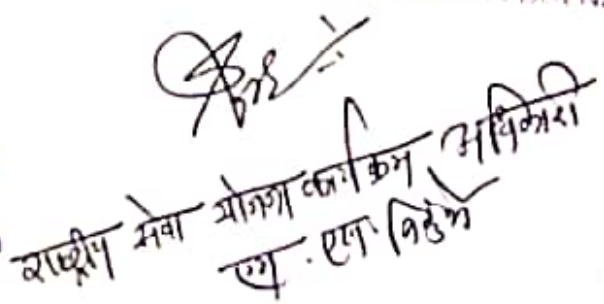 राष्ट्रीय सेवा योजना कार्यक्रम अधिकारी
एम. एल.